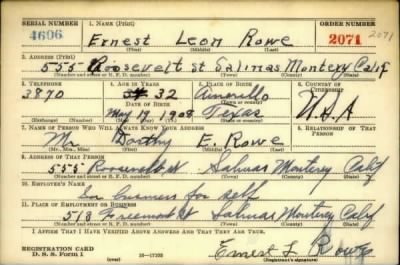 SERIAL NUMBER 1. NAME (Print) ORDER NUMBER
4606 Ernest Leon Rowe 2071 2071
(First) (Middle) (Last)
2. ADDRESS (Print)
555 Roosevelt st Salinas Montery Calif
(Number and street or R. F. D. number) (Town) (County) (State)
3. TELEPHONE 4. AGE IN YEARS 5. PLACE OF BIRTH 6. COUNTRY OF CITIZENSHIP
3870 32 Amarillo
DATE OF BIRTH (Town or county)
May 17 1908 Texas U.S.A
(Exchange) (Number) (Mo.) (Day) (Yr.) (State or country)
7. NAME OF PERSON WHO WILL ALWAYS KNOW YOUR ADDRESS 8. RELATIONSHIP OF THAT PERSON
Dorthy E. Rowe
(Mr., Mrs., Miss) (First) (Middle) (Last)
9. ADDRESS OF THAT PERSON
555 Roosevelt st Salinas Monterey Calif
(Number and street or R. F. D. number) (Town) (County) (State)
10. EMPLOYER'S NAME
In business for self
11. PLACE OF EMPLOYMENT OR BUSINESS
518 Freemont st Salinas Monterey Calif
(Number and street or R. F. D. number) (Town) (County) (State)
I AFFIRM THAT I HAVE VERIFIED ABOVE ANSWERS AND THAT THEY ARE TRUE.
REGISTRATION CARD
D. S. S. Form 1 (over) 16—17105 Ernest L Rowe
(Registrant's signature)